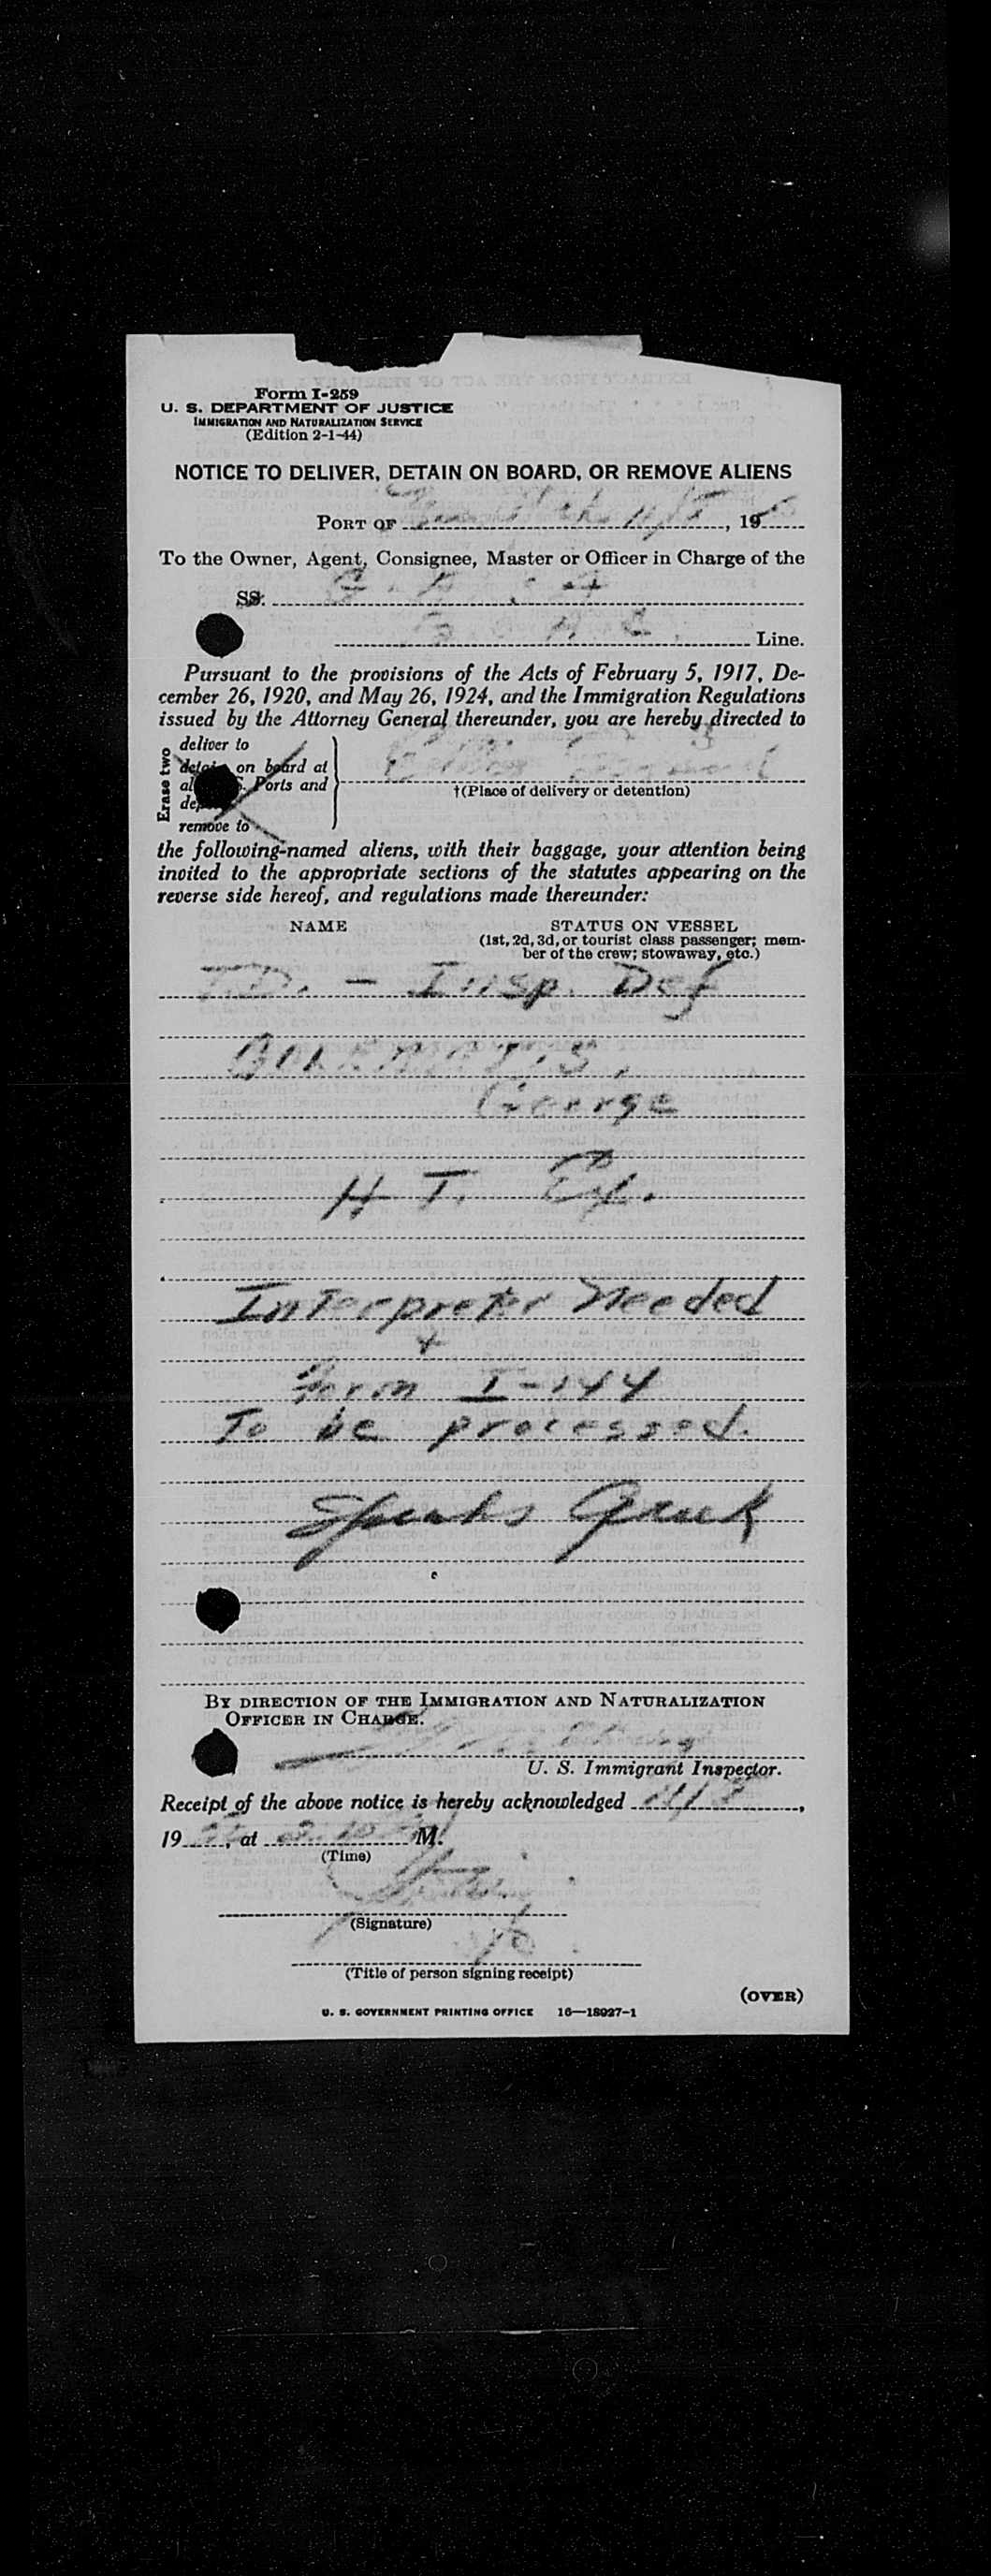 Form I-259
U. S. DEPARTMENT OF JUSTICE
IMMIGRATION AND NATURALIZATION SERVICE
(Edition 2-1-44)
NOTICE TO DELIVER, DETAIN ON BOARD, OR REMOVE ALIENS
PORT OF 11/8, 19
To the Owner, Agent, Consignee, Master or Officer in Charge of the
SS.
Line.
Pursuant to the provisions of the Acts of February 5, 1917, De-
cember 26, 1920, and May 26, 1924, and the Immigration Regulations
issued by the Attorney General thereunder, you are hereby directed to
Erase two
deliver to
detain on board at
Ports and
remove to
†(Place of delivery or detention)
the following-named aliens, with their baggage, your attention being
invited to the appropriate sections of the statutes appearing on the
reverse side hereof, and regulations made thereunder:
NAME STATUS ON VESSEL
(1st, 2d, 3d, or tourist class passenger; mem-
ber of the crew; stowaway, etc.)
T.D. - Insp. Def
George
H. T.
Interpreter Needed
+
Form I-144
To be processed.
Speaks Greek
BY DIRECTION OF THE IMMIGRATION AND NATURALIZATION
OFFICER IN CHARGE.
U. S. Immigrant Inspector.
Receipt of the above notice is hereby acknowledged 11/8,
19, at M.
(Time)
(Signature)
(Title of person signing receipt)
(OVER)
U. S. GOVERNMENT PRINTING OFFICE 16—18927-1